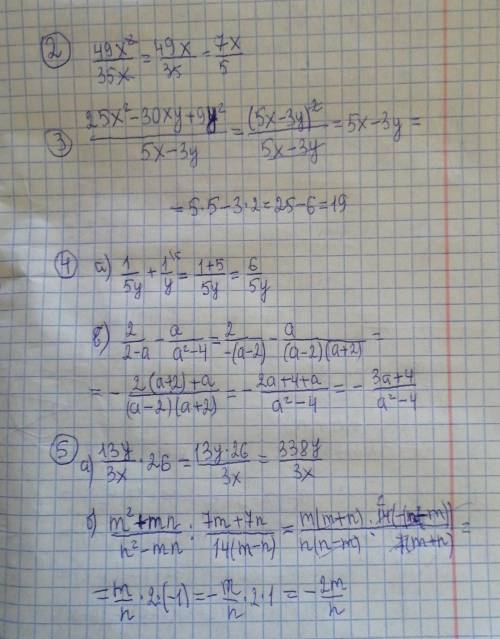 ② 49x²/35x = 49x/35 = 7x/5
③ 25x²-30xy+9y²/5x-3y = (5x-3y)²/5x-3y = 5x-3y =
= 5·5-3·2=25-6=19
④ а) 1/5y + 1\⁵/y = 1+5/5y = 6/5y
б) 2/2-a - a/a²-4 = 2/-(a-2) - a/(a-2)(a+2) =
= - 2(a+2)+a/(a-2)(a+2) = - 2a+4+a/a²-4 = - 3a+4/a²-4
⑤ а) 13y/3x · 26 = 13y·26/3x = 338y/3x
б) m²+mn/n²-mn : 7m+7n/14(m-n) = m(m+n)/n(n-m) · 14(-(n-m))/7(m+n) =
= m/n · 2·(-1) = - m/n · 2·1 = - 2m/n